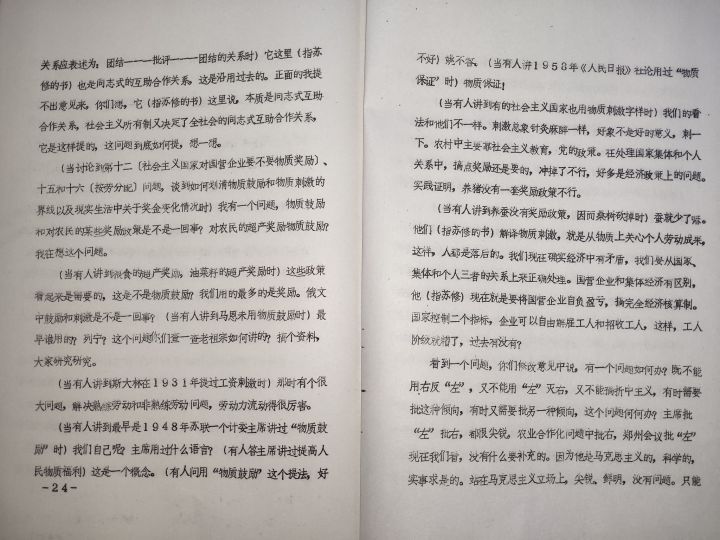 关系应表述为：团结——批评——团结的关系时）它这里（指苏
修的书）也是同志式的互助合作关系。这是沿用过去的。正面的我提
不出意见来，你们想，它（指苏修的书）这里说，本质是同志式互助
合作关系，社会主义所有制又决定了全社会的同志式互助合作关系，
它是这样提的，这问题到底如何提，想一想。
（当讨论到第十二〔社会主义国家对国营企业要不要物质奖励〕、
十五和十六〔按劳分配〕问题，谈到如何划清物质鼓励和物质刺激的
界线以及现实生活中关于奖金变化情况时）我有一个问题，物质鼓励
和对农民的某些奖励政策是不是一回事？对农民的超产奖励物质鼓励？
我在想这个问题。
（当有人讲到粮食的超产奖励，油菜籽的超产奖励时）这些政策
看起来是需要的，这是不是物质鼓励？我们用的最多的是奖励。俄文
中鼓励和刺激是不是一回事？（当有人讲到马恩未用物质鼓励时）最
早谁用的？列宁？这个问题你们查一查老祖宗如何讲的？搞个资料，
大家研究研究。
（当有人讲到斯大林在1931年提过工资刺激时）那时有个很
大问题，解决熟练劳动和非熟练劳动问题，劳动力流动得很厉害。
（当有人讲到最早是1948年苏联一个计委主席讲过“物质鼓
励”时）我们自己呢？主席用过什么语言？（有人答主席讲过提高人
民物质福利）这是一个概念。（有人问用“物质鼓励”这个提法，好
－24－
不好）姚不答。（当有人讲1958年《人民日报》社论用过“物质
保证”时）物质保证！
（当有人讲到有的社会主义国家也用物质刺激字样时）我们的看
法和他们不一样。刺激总象针灸麻醉一样，好象不是好的意义，刺一
下。农村中主要靠社会主义教育，党的政策。在处理国家集体和个人
关系中，搞点奖励还是要的，冲掉了不行，好多是经济政策上的问题。
实践证明，养猪没有一套奖励政策不行。
（当有人讲到养蚕没有奖励政策，因而桑树砍掉时）蚕就少了嘛。
他们（指苏修的书）解译物质刺激，就是从物质上关心个人劳动成果，
这样，人都是落后的。我们现在确实经济中有矛盾，我们要从国家、
集体和个人三者的关系上来正确处理。国营企业和集体经济有区别，
他（指苏修）现在就是要将国营企业自负盈亏，搞完全经济核算制。
国家控制二个指标，企业可以自由解雇工人和招收工人，这样，工人
阶级就糟了，过去有没有？
看到一个问题，你们修改意见中说，有一个问题如何办？既不能
用右反“左”，又不能用“左”灭右，又不能搞折中主义，有时需要
批这种倾向，有时又需要批另一种倾向，这个问题何何办？主席批
“左”批右，都很尖锐。农业合作化问题中批右，郑州会议批“左”
现在我们看，没有什么要补充的。因为他是马克思主义的，科学的，
实事求是的。站在马克思主义立场上，尖锐、鲜明，没有问题。只能